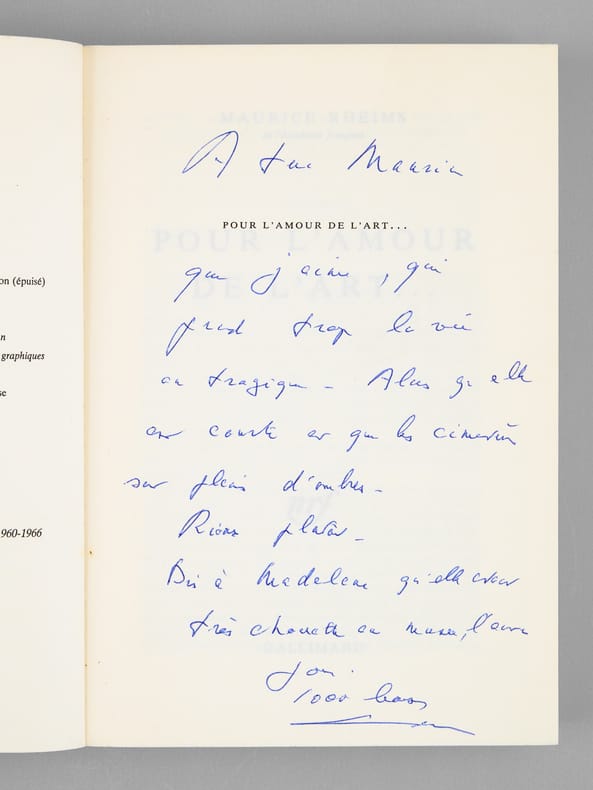 on (épuisé)
n
graphiques
se
1960-1966
MAURICE RHEIMS
de l'Académie française
A Luc Maurin
POUR L'AMOUR DE L'ART...
POUR L'AMOUR
DE L'ART...
que j'aime, qui
prend trop la vie
au tragique – Alors qu'elle
est courte et que les cimetières
sont pleins d'ombres –
Rions plutôt –
Dis à Madeleine qu'elle était
très chouette en l'autre
nrf
GALLIMARD
1000 bises